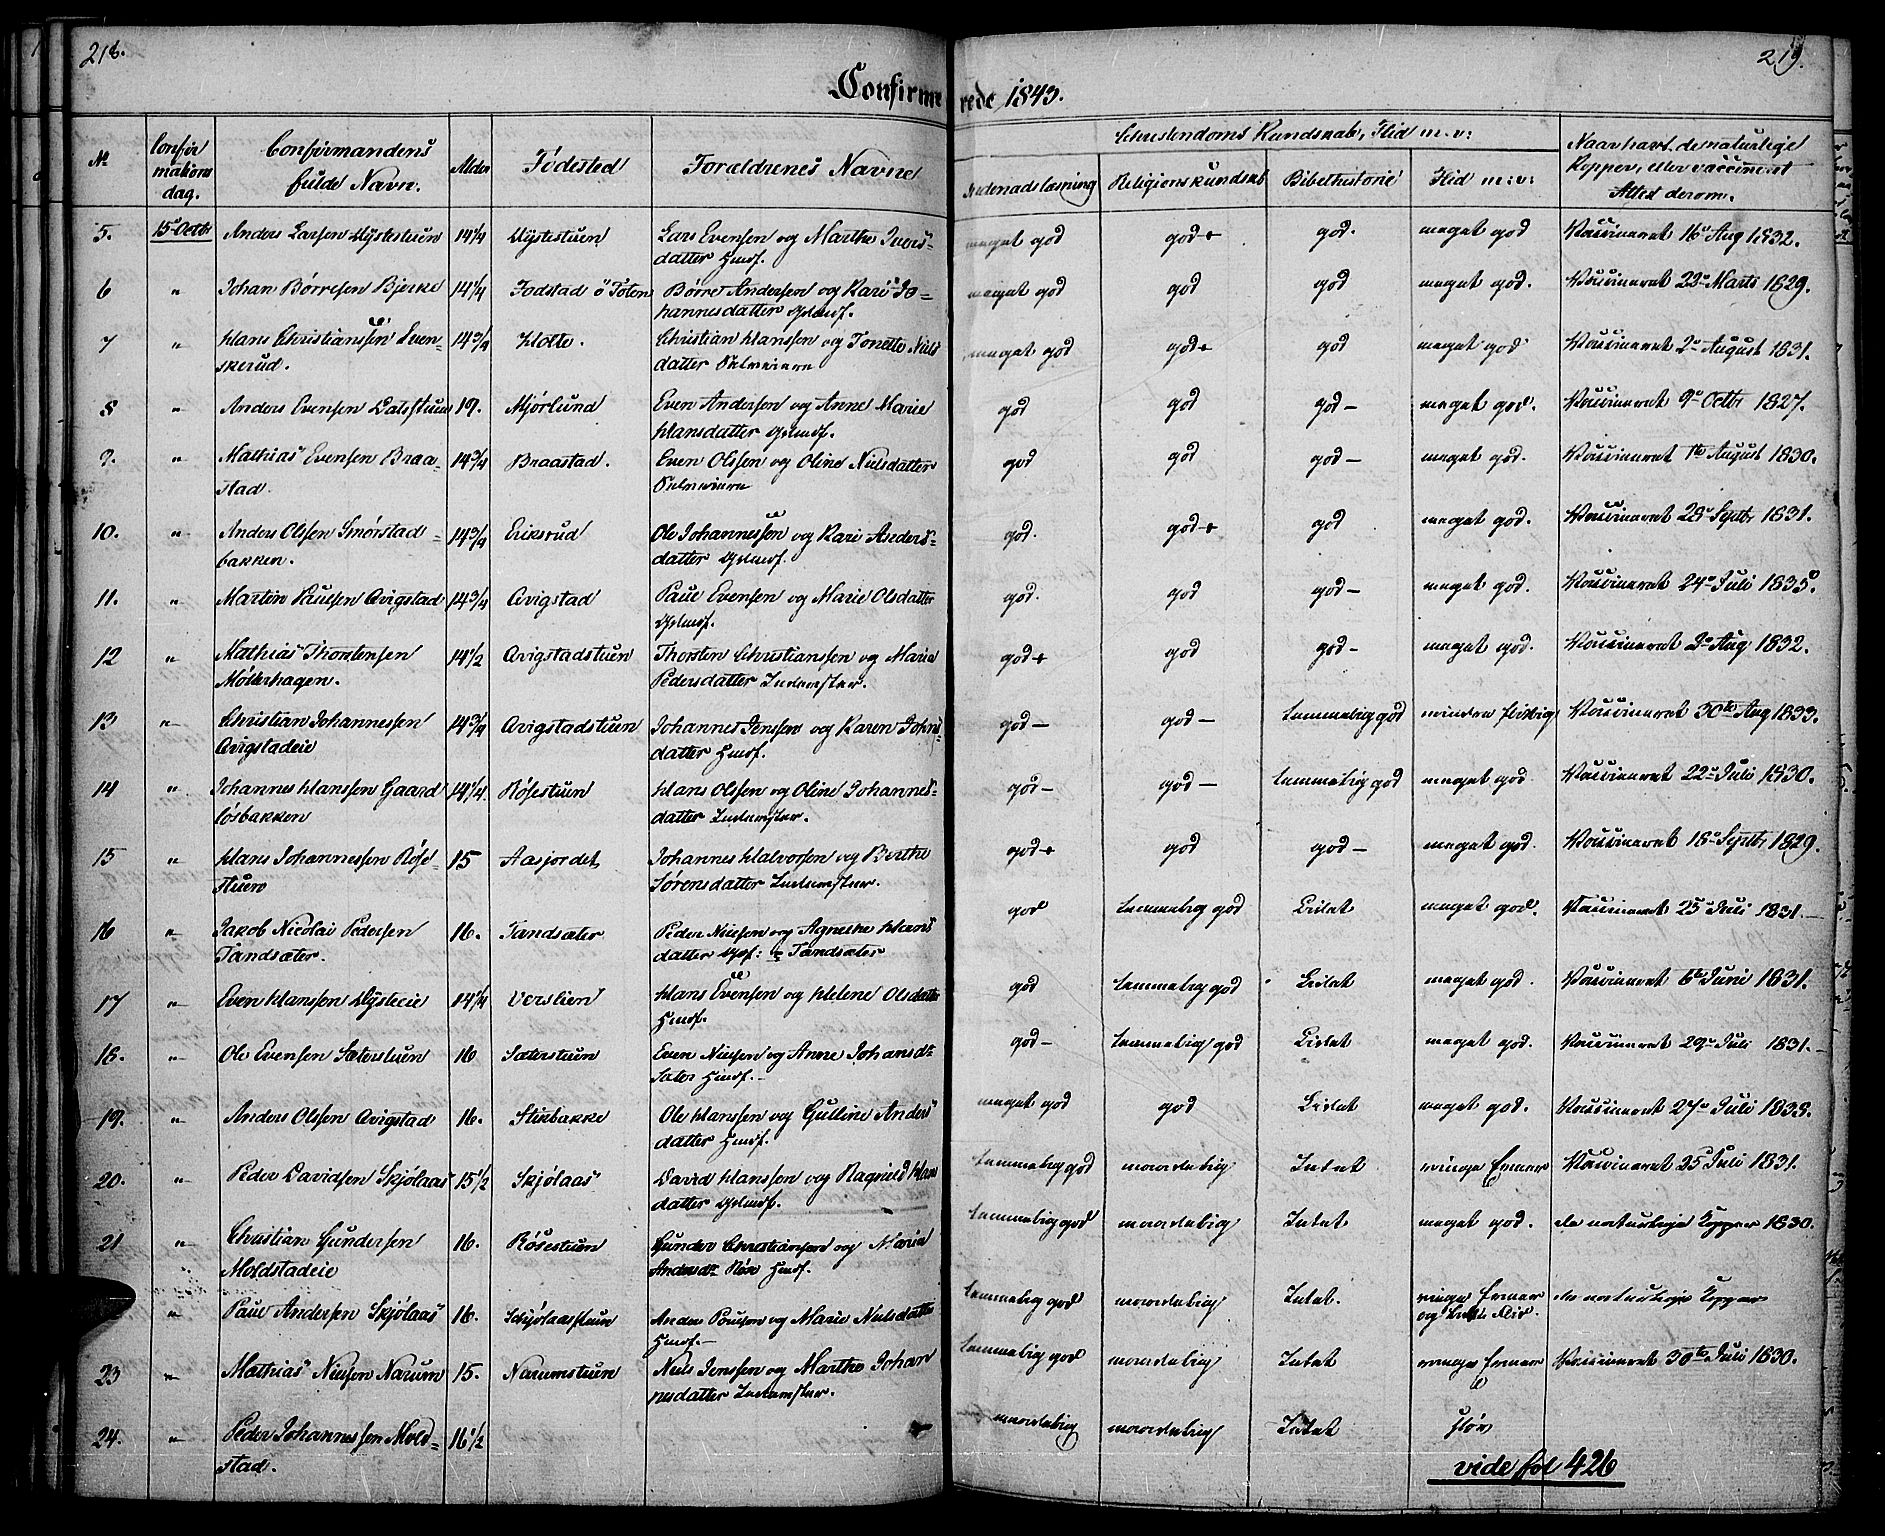 218.
219.
Confirmerede 1843.
No
Confirmationsdag.
Confirmandens fulde Navn.
Alder
Fødested
Forældrenes Navne
Christendoms Kundskab, Flid m: v:
Indenadslæsning
Religionskundskab
Bibelhistorie
Flid m: v:
Naar havt de naturlige Kopper, eller vaccineret Attest derom.
5. 15de Octbr Anders Larsen Hystestuen 14 1/4 Hystestuen Lars Evensen og Marthe Ivers-
datter Husf. meget god god+ god. meget god Vaccineret 16de Aug 1832.
6 " Johan Børresen Bjerke 14 1/4 Fodstad ö Toten Børre Andersen og Kari Jo-
hannesdatter Gelmdf. meget god god god meget god. Vaccineret 22de Marts 1829.
7 " Hans Christianssen Svenskerud. 14 3/4 Klette. Christian Hanssen og Tonette Niels
datter Selveiere meget god god+ god meget god Vaccineret 2de August 1831.
8 " Anders Evensen Dalsstuen 19. Mjørlund Even Andersen og Anne Marie
Hansdatter Gelmdf. god god god- meget god. Vaccineret 9de Octbr 1827.
9. " Mathias Evensen Braastad. 14 3/4 Braastad. Even Olssen og Oline Nielsdatter
Selveiere god god god- meget god. Vaccineret 1ste August 1830.
10. " Anders Olssen Smørstadbakken. 14 3/4 Eriksrud Ole Johannessen og Kari Anders-
datter Gelmdf. god. god+ god meget god. Vaccineret 28de Septbr 1831.
11. " Martin Paulsen Qvigstad 14 3/4 Qvigstad Paul Evensen og Marie Olsdatter
Gelmdf. god. god god- meget god. Vaccineret 24de Juli 1835.
12 " Mathias Thorstensen Møllerhagen. 14 1/2 Qvigstadstuen Thorsten Christianssen og Maria
Pedersdatter Inderster. god+ god god- meget god. Vaccineret 3de Aug 1832.
13 " Christian Johannessen Qvigstadeie 14 3/4 Qvigstadstuen Johannes Jenssen og Karen Johns-
datter Husf. god- god- temmelig god mindre flittig Vaccineret 30te Aug 1833.
14 " Johannes Hanssen Gaardløsbakken 14 1/4 Røsestuen Hans Olssen og Oline Johannes-
datter Inderster. god- god- temmelig god meget god Vaccineret 22de Juli 1830.
15 " Hans Johannessen Røsestuen 15 Aasjordet Johannes Halvorsen og Berthe
Sørensdatter Inderster. god+ god god- meget god. Vaccineret 18de Septbr 1829.
16 " Jakob Nicolai Pedersen Tandsæter. 16. Tandsæter Peder Nielsen og Agnethe Hans
datter Tandsæter god temmelig god Lidet meget god. Vaccineret 25de Juli 1831.
17 " Even Hanssen Hysteeie 14 1/4 Verslien Hans Evensen og Helene Olsdatter
Husf. god temmelig god Lidet meget god. Vaccineret 6te Juni 1831.
18. " Ole Evensen Sæterstuen 16 Sæterstuen Even Nielsen og Anne Johansdr
Sæter Husf. god- temmelig god Lidet meget god. Vaccineret 29de Juli 1831.
19. " Anders Olssen Qvigstad 16. Stikbakke Ole Hanssen og Gulline Anders
datter Husf. meget god god Lidet meget god. Vaccineret 27de Juli 1833.
20. " Peder Davidsen Skjølaas 15 1/2 Skjølaas David Hanssen og Ragnild Hans
datter Gelmdf. temmelig god maadelig Intet ringe Evner Vaccineret 25de Juli 1831.
21 " Christian Gundersen Moldstadeie 16. Røsestuen Gunder Christiansen og Maria
Andersdr Røse Husf. temmelig god maadelig Intet meget god. de naturlige Kopper 1830.
" Paul Andersen Skjølaas 16. Schjølaasstuen Anders Poulsen og Marie Nielsdatter
Husf. temmelig god maadelig Intet. ringe Evner og liden Flid. de naturlige Kopper
23 " Mathias Nielsen Narum 15. Narumstuen Niels Jenssen og Marthe Johan
nesdatter Inderster. temmelig god maadelig Intet ringe Evner Vaccineret 30te Juli 1830.
24. " Peder Johannessen Moldstad. 16 1/2 maadelig maadelig Intet sløv
vide fol 426